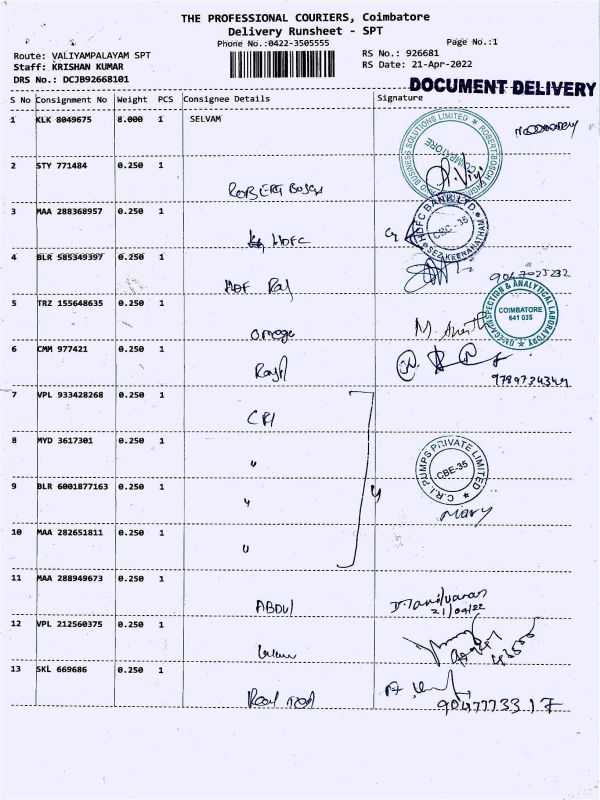 THE PROFESSIONAL COURIERS, Coimbatore
Delivery Runsheet - SPT
Phone No.:0422-3505555
Page No.:1
Route: VALIYAMPALAYAM SPT
RS No.: 926681
Staff: KRISHAN KUMAR
RS Date: 21-Apr-2022
DRS No.: DCJB92668101
DOCUMENT DELIVERY
S No Consignment No Weight PCS Consignee Details Signature
1 KLK 8049675 8.000 1 SELVAM
2 STY 771484 0.250 1
ROBERT BOSCH
3 MAA 288368957 0.250 1
HDFC
HDFC BANK LTD.
CBE - 35
4 BLR 585349397 0.250 1
5 TRZ 155648635 0.250 1
Omega
COIMBATORE
641 035
6 CMM 977421 0.250 1
7 VPL 933428268 0.250 1
CRI
8 MYD 3617301 0.250 1
"
C.R.I. PUMPS PRIVATE LIMITED
CBE-35
9 BLR 6001877163 0.250 1
"
Mary
10 MAA 282651811 0.250 1
"
11 MAA 288949673 0.250 1
ABDUL
21/04/22
12 VPL 212560375 0.250 1
13 SKL 669686 0.250 1
9047773317